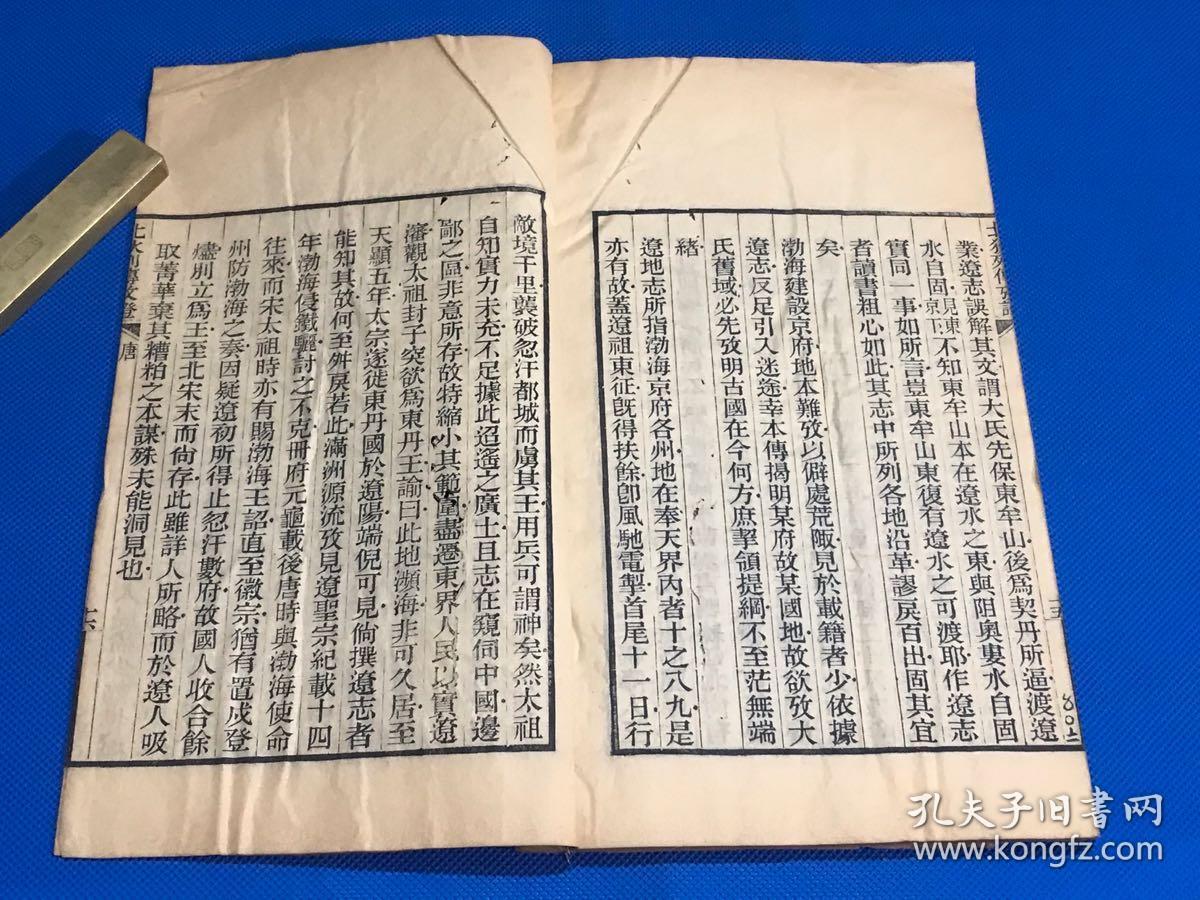 業遼志誤解其文謂大氏先保東牟山後爲契丹所逼渡遼
水自固見東京下不知東牟山本在遼水之東與阻奧婁水自固
實同一事如所言豈東牟山東復有遼水之可渡耶作遼志
者讀書粗心如此其志中所列各地沿革謬戾百出固其宜
矣
渤海建設京府地本難攷以僻處荒陬見於載籍者少依據
遼志反足引入迷途幸本傳揭明某府故某國地故欲攷大
氏舊域必先攷明古國在今何方庶挈領提綱不至茫無端
緒
遼地志所指渤海京府各州地在奉天界內者十之八九是
亦有故蓋遼祖東征旣得扶餘卽風馳電掣首尾十一日行
十五
敵境千里襲破忽汗都城而虜其王用兵可謂神矣然太祖
自知實力未充不足據此迢遙之廣土且志在窺伺中國邊
鄙之區非意所存故特縮小其範圍盡遷東界人民以實遼
瀋觀太祖封子突欲爲東丹王諭曰此地瀕海非可久居至
天顯五年太宗遂徙東丹國於遼陽端倪可見倘撰遼志者
能知其故何至舛戾若此滿洲源流攷見遼聖宗紀載十四
年渤海侵鐵驪討之不克冊府元龜載後唐時與渤海使命
往來而宋太祖時亦有賜渤海王詔直至徽宗猶有置戍登
州防渤海之奏因疑遼初所得止忽汗數府故國人收合餘
燼別立爲王至北宋末而尙存此雖詳人所略而於遼人吸
取菁華棄其糟粕之本謀殊未能洞見也
唐
十六
孔夫子旧书网
www.kongfz.com